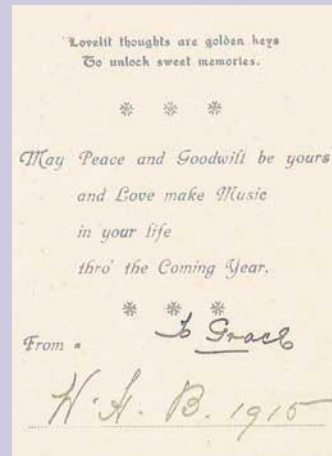 "Lovelit thoughts are golden keys
To unlock sweet memories.
May Peace and Goodwill be yours
and Love make Music
in your life
thro' the Coming Year.
To Grace
From
W. H. B. 1915